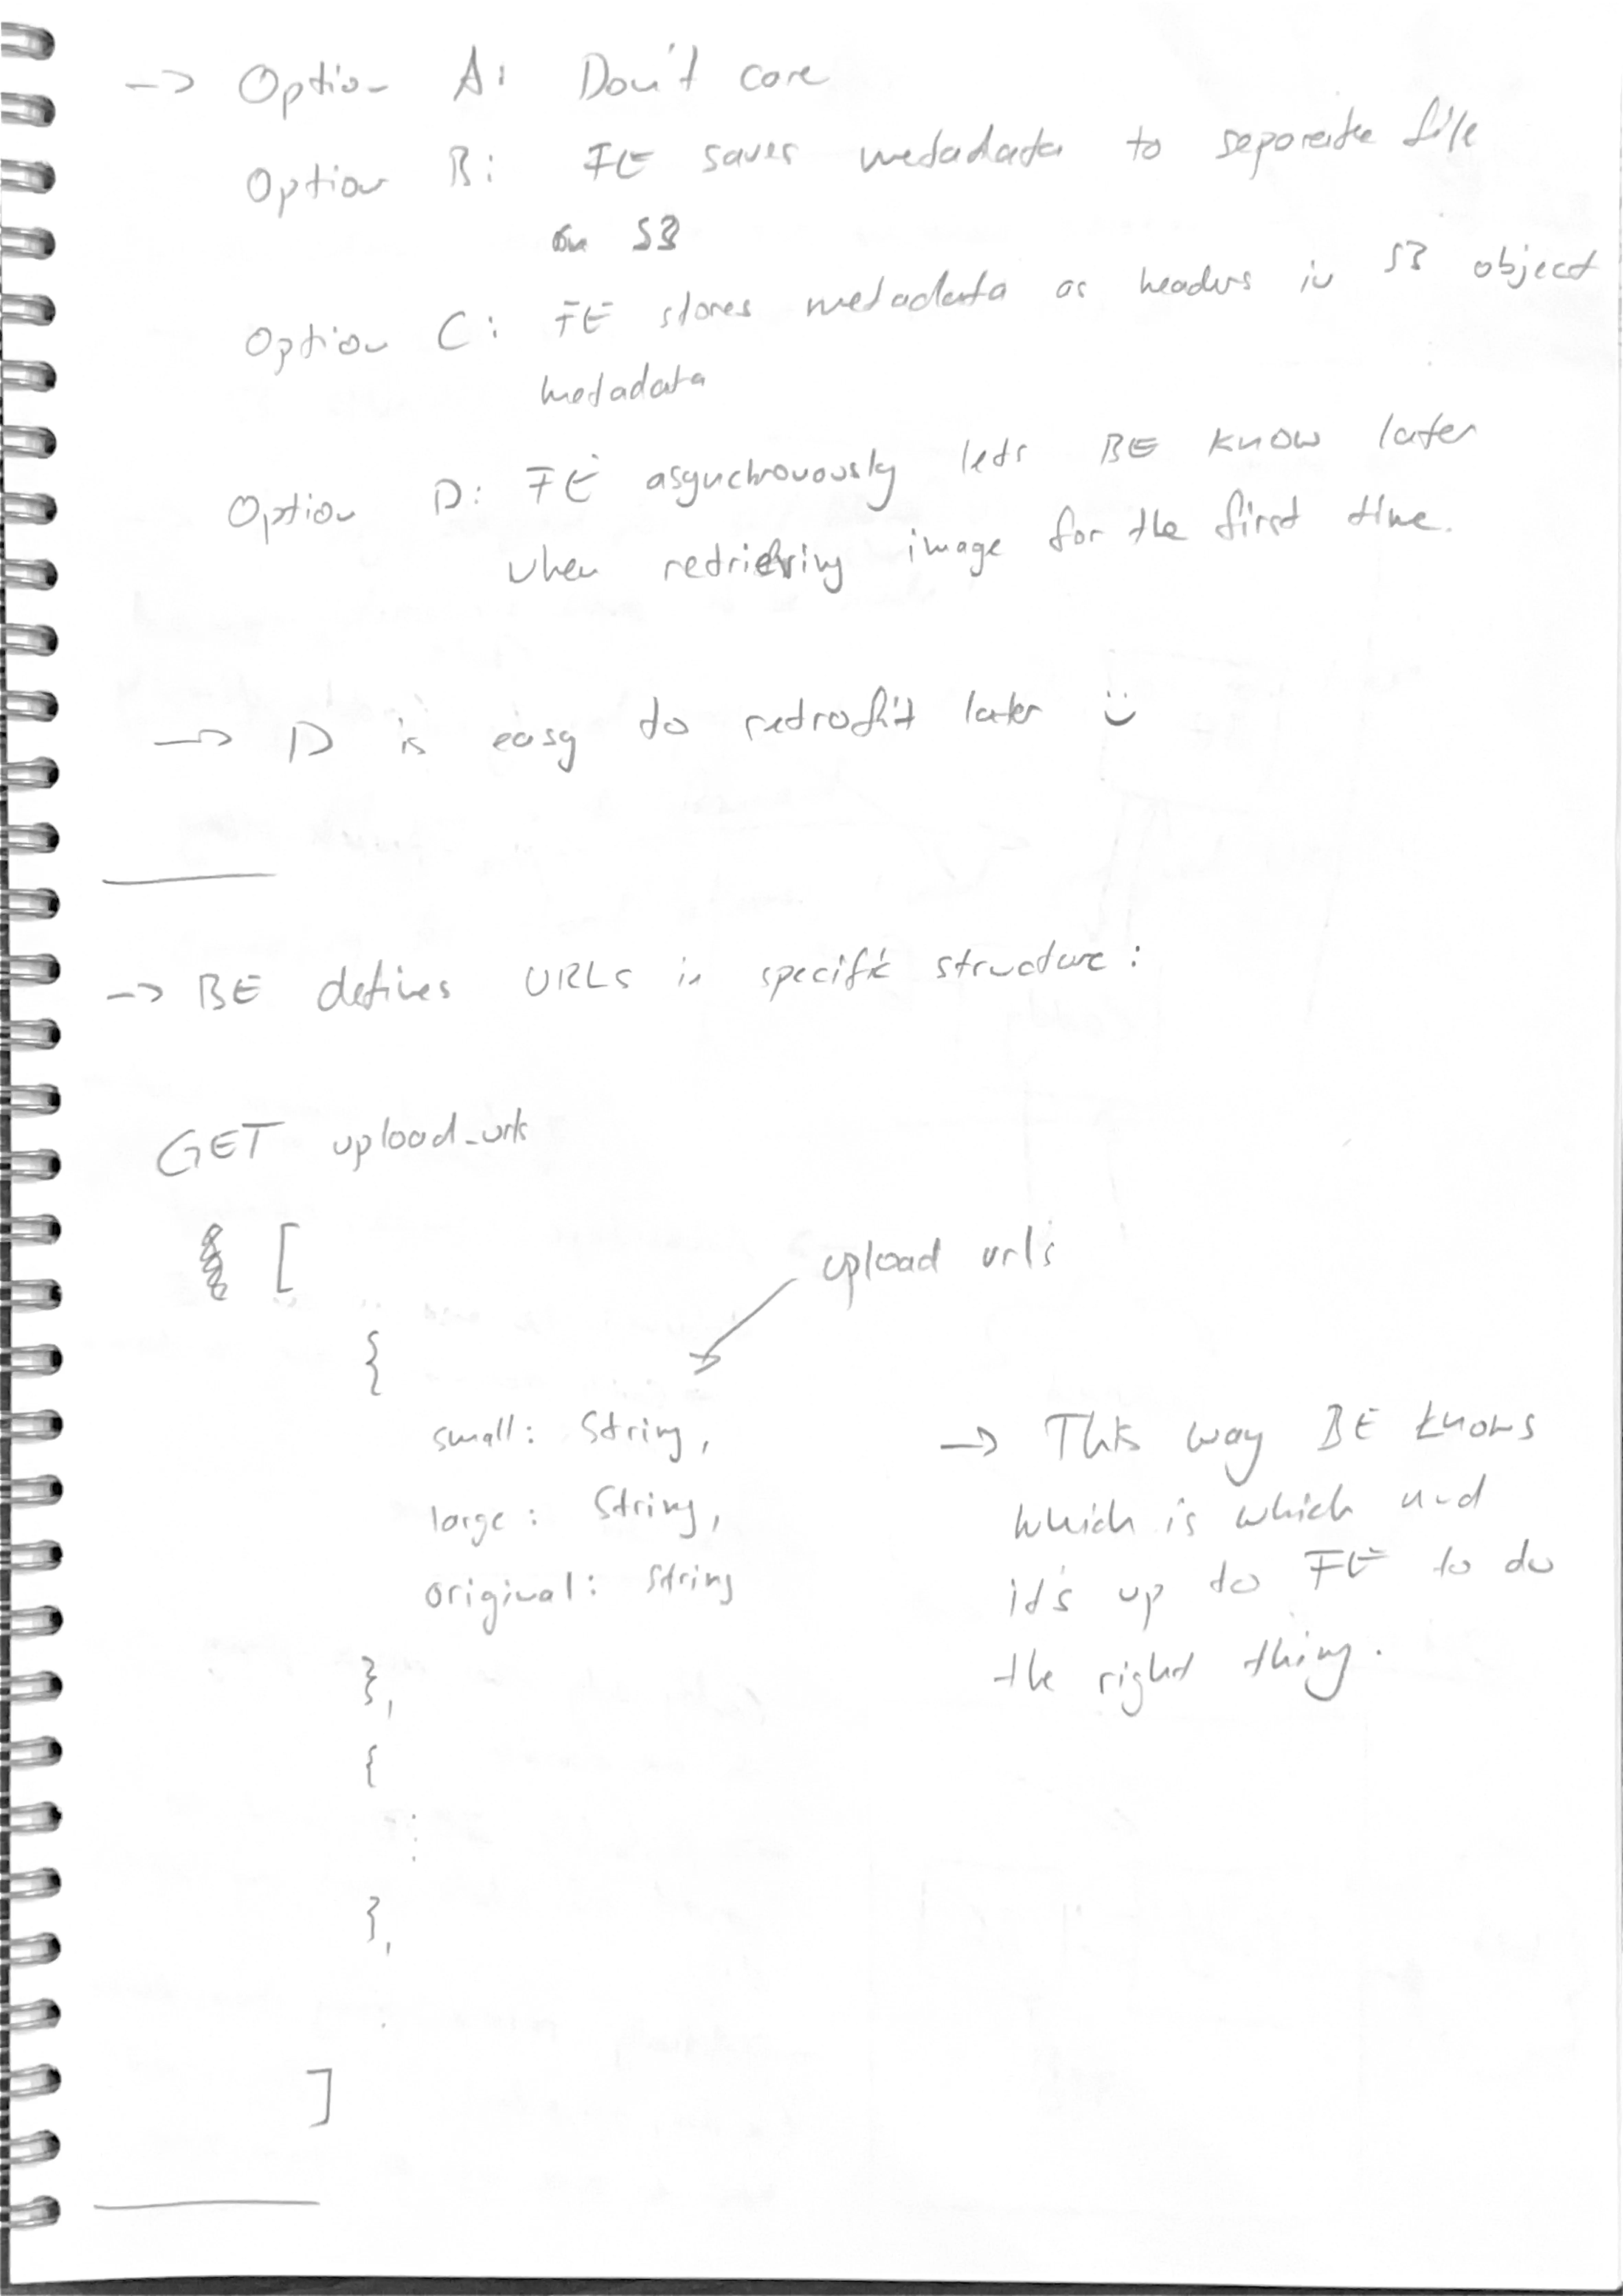 -> Option A: Don't care
Option B: FE saves metadata to separate file
on S3
Option C: FE stores metadata as headers in S3 object
metadata
Option D: FE asynchronously lets BE know later
when retrieving image for the first time.
-> D is easy to retrofit later :)
-> BE defines URLs in specific structure:
GET upload_urls
[
upload urls
{
small: String,
large: String,
original: String
},
{
⋮
},
.
]
-> This way BE knows
which is which and
it's up to FE to do
the right thing.